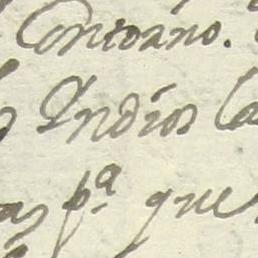 Contrario.
Indios la
as pª. que